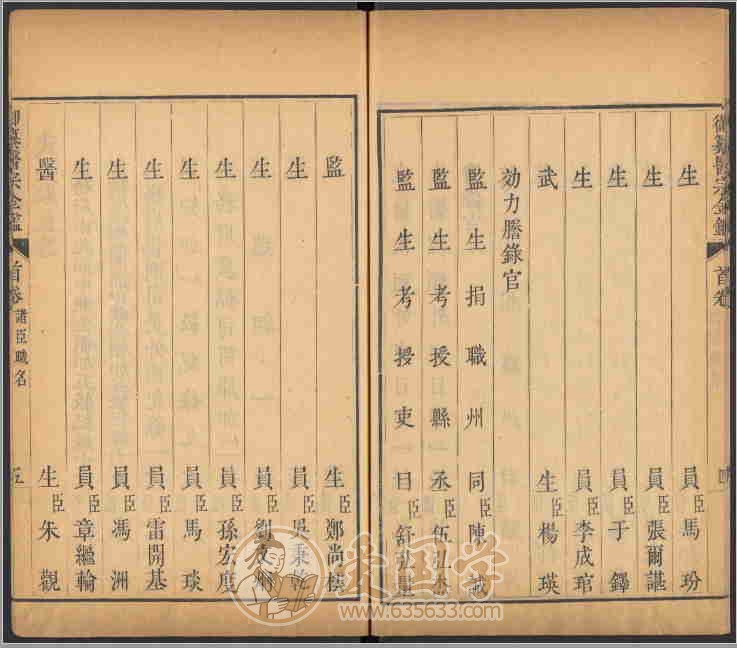 御纂醫宗金鑑 首卷 四
生員臣馬玢
生員臣張爾諶
生員臣于鐸
生員臣李成琯
武生臣楊瑛
効力謄錄官
監生捐職州同臣陳誠
監生考授縣丞臣伍弘
監生考授吏目臣舒弘量
監生臣鄭尚
生員臣吳秉乾
生員臣劉友
生員臣孫宏度
生員臣馬琰
生員臣雷開基
生員臣馮洲
生員臣章繼輪
醫生臣朱觀
御纂醫宗金鑑 首卷 諸臣職名 五
爱国学
www.635633.com